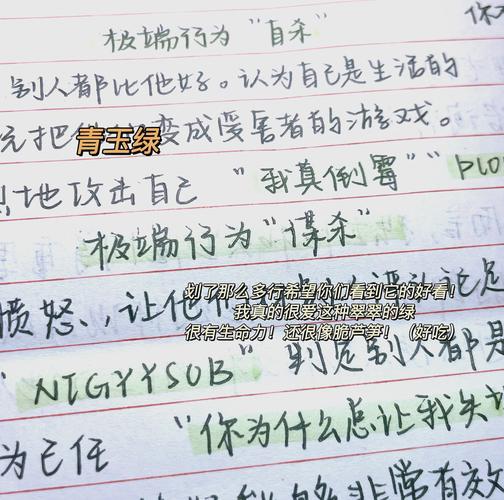 你为
极端行为“自杀”
别人都比他好。认为自己是生活的
变成受害者的游戏。
青玉绿
地攻击自己 “我真倒霉”
极端行为“谋杀”
划了那么多行希望你们看到它的好看!
愤怒、,让他
我真的很爱这种翠翠的绿
很有生命力! 还很像脆芦笋! (好吃)
“NIGYYSOB” 别人都是
为己任 “你为什么总让我失
非常有效